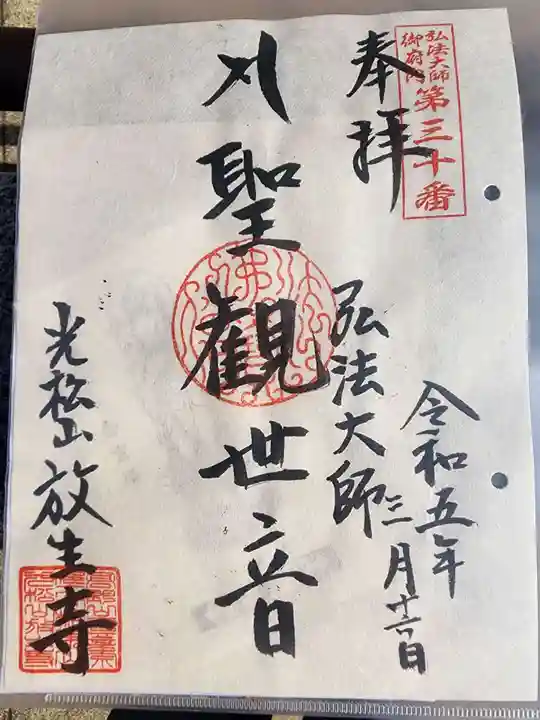 弘法大師
御府内
第三十番
奉拝
令和五年
三月十六日
弘法大師
聖観世音
光松山放生寺